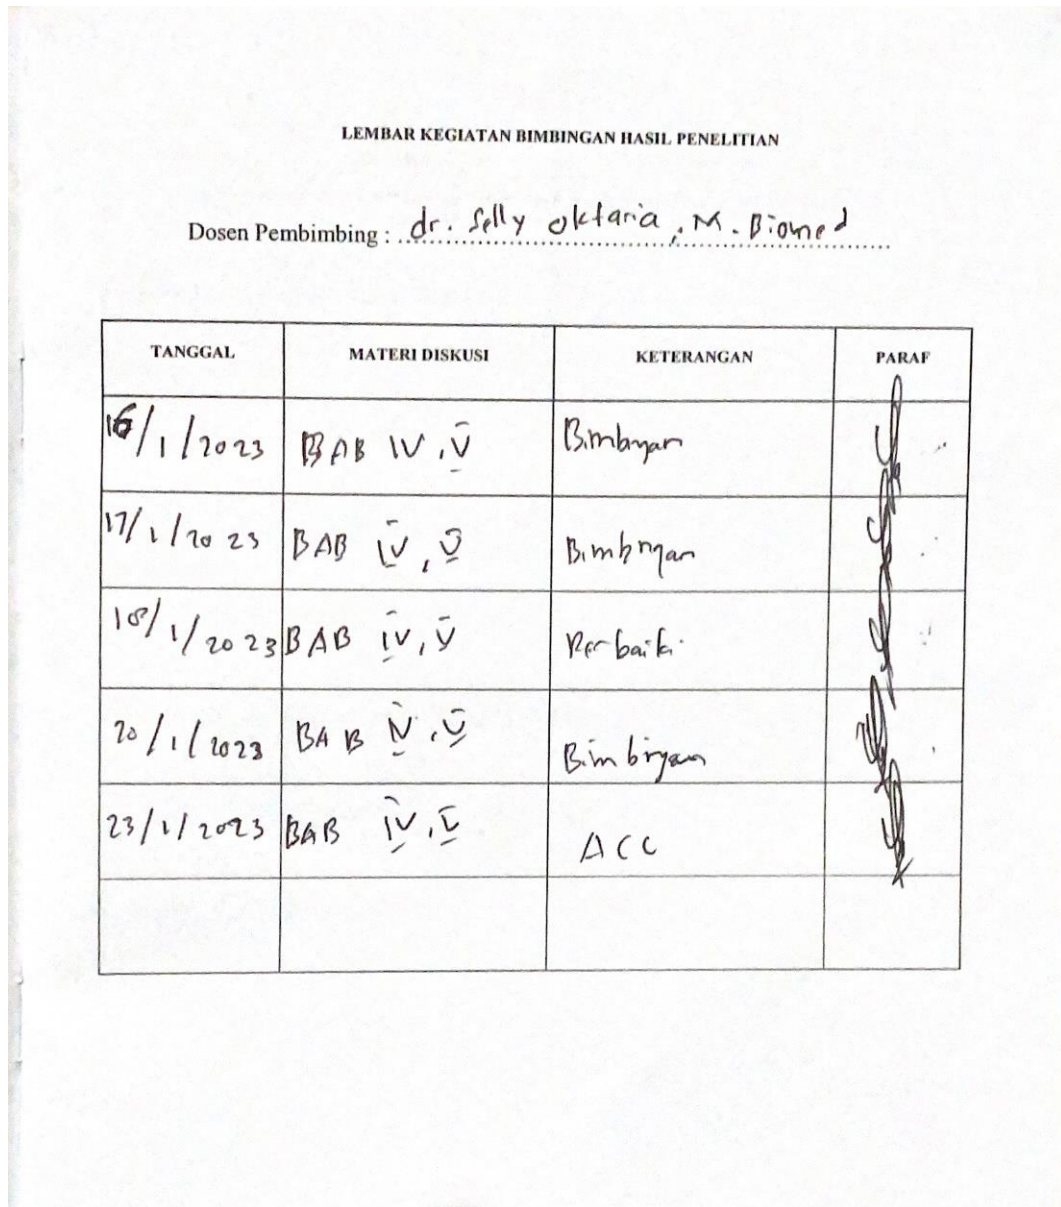 LEMBAR KEGIATAN BIMBINGAN HASIL PENELITIAN
Dosen Pembimbing : dr. Selly Oktaria, M. Biomed
TANGGAL MATERI DISKUSI KETERANGAN PARAF
16/1/2023 BAB IV, V Bimbingan
17/1/2023 BAB IV, V Bimbingan
18/1/2023 BAB IV, V Perbaiki
20/1/2023 BAB IV, V Bimbingan
23/1/2023 BAB IV, V ACC